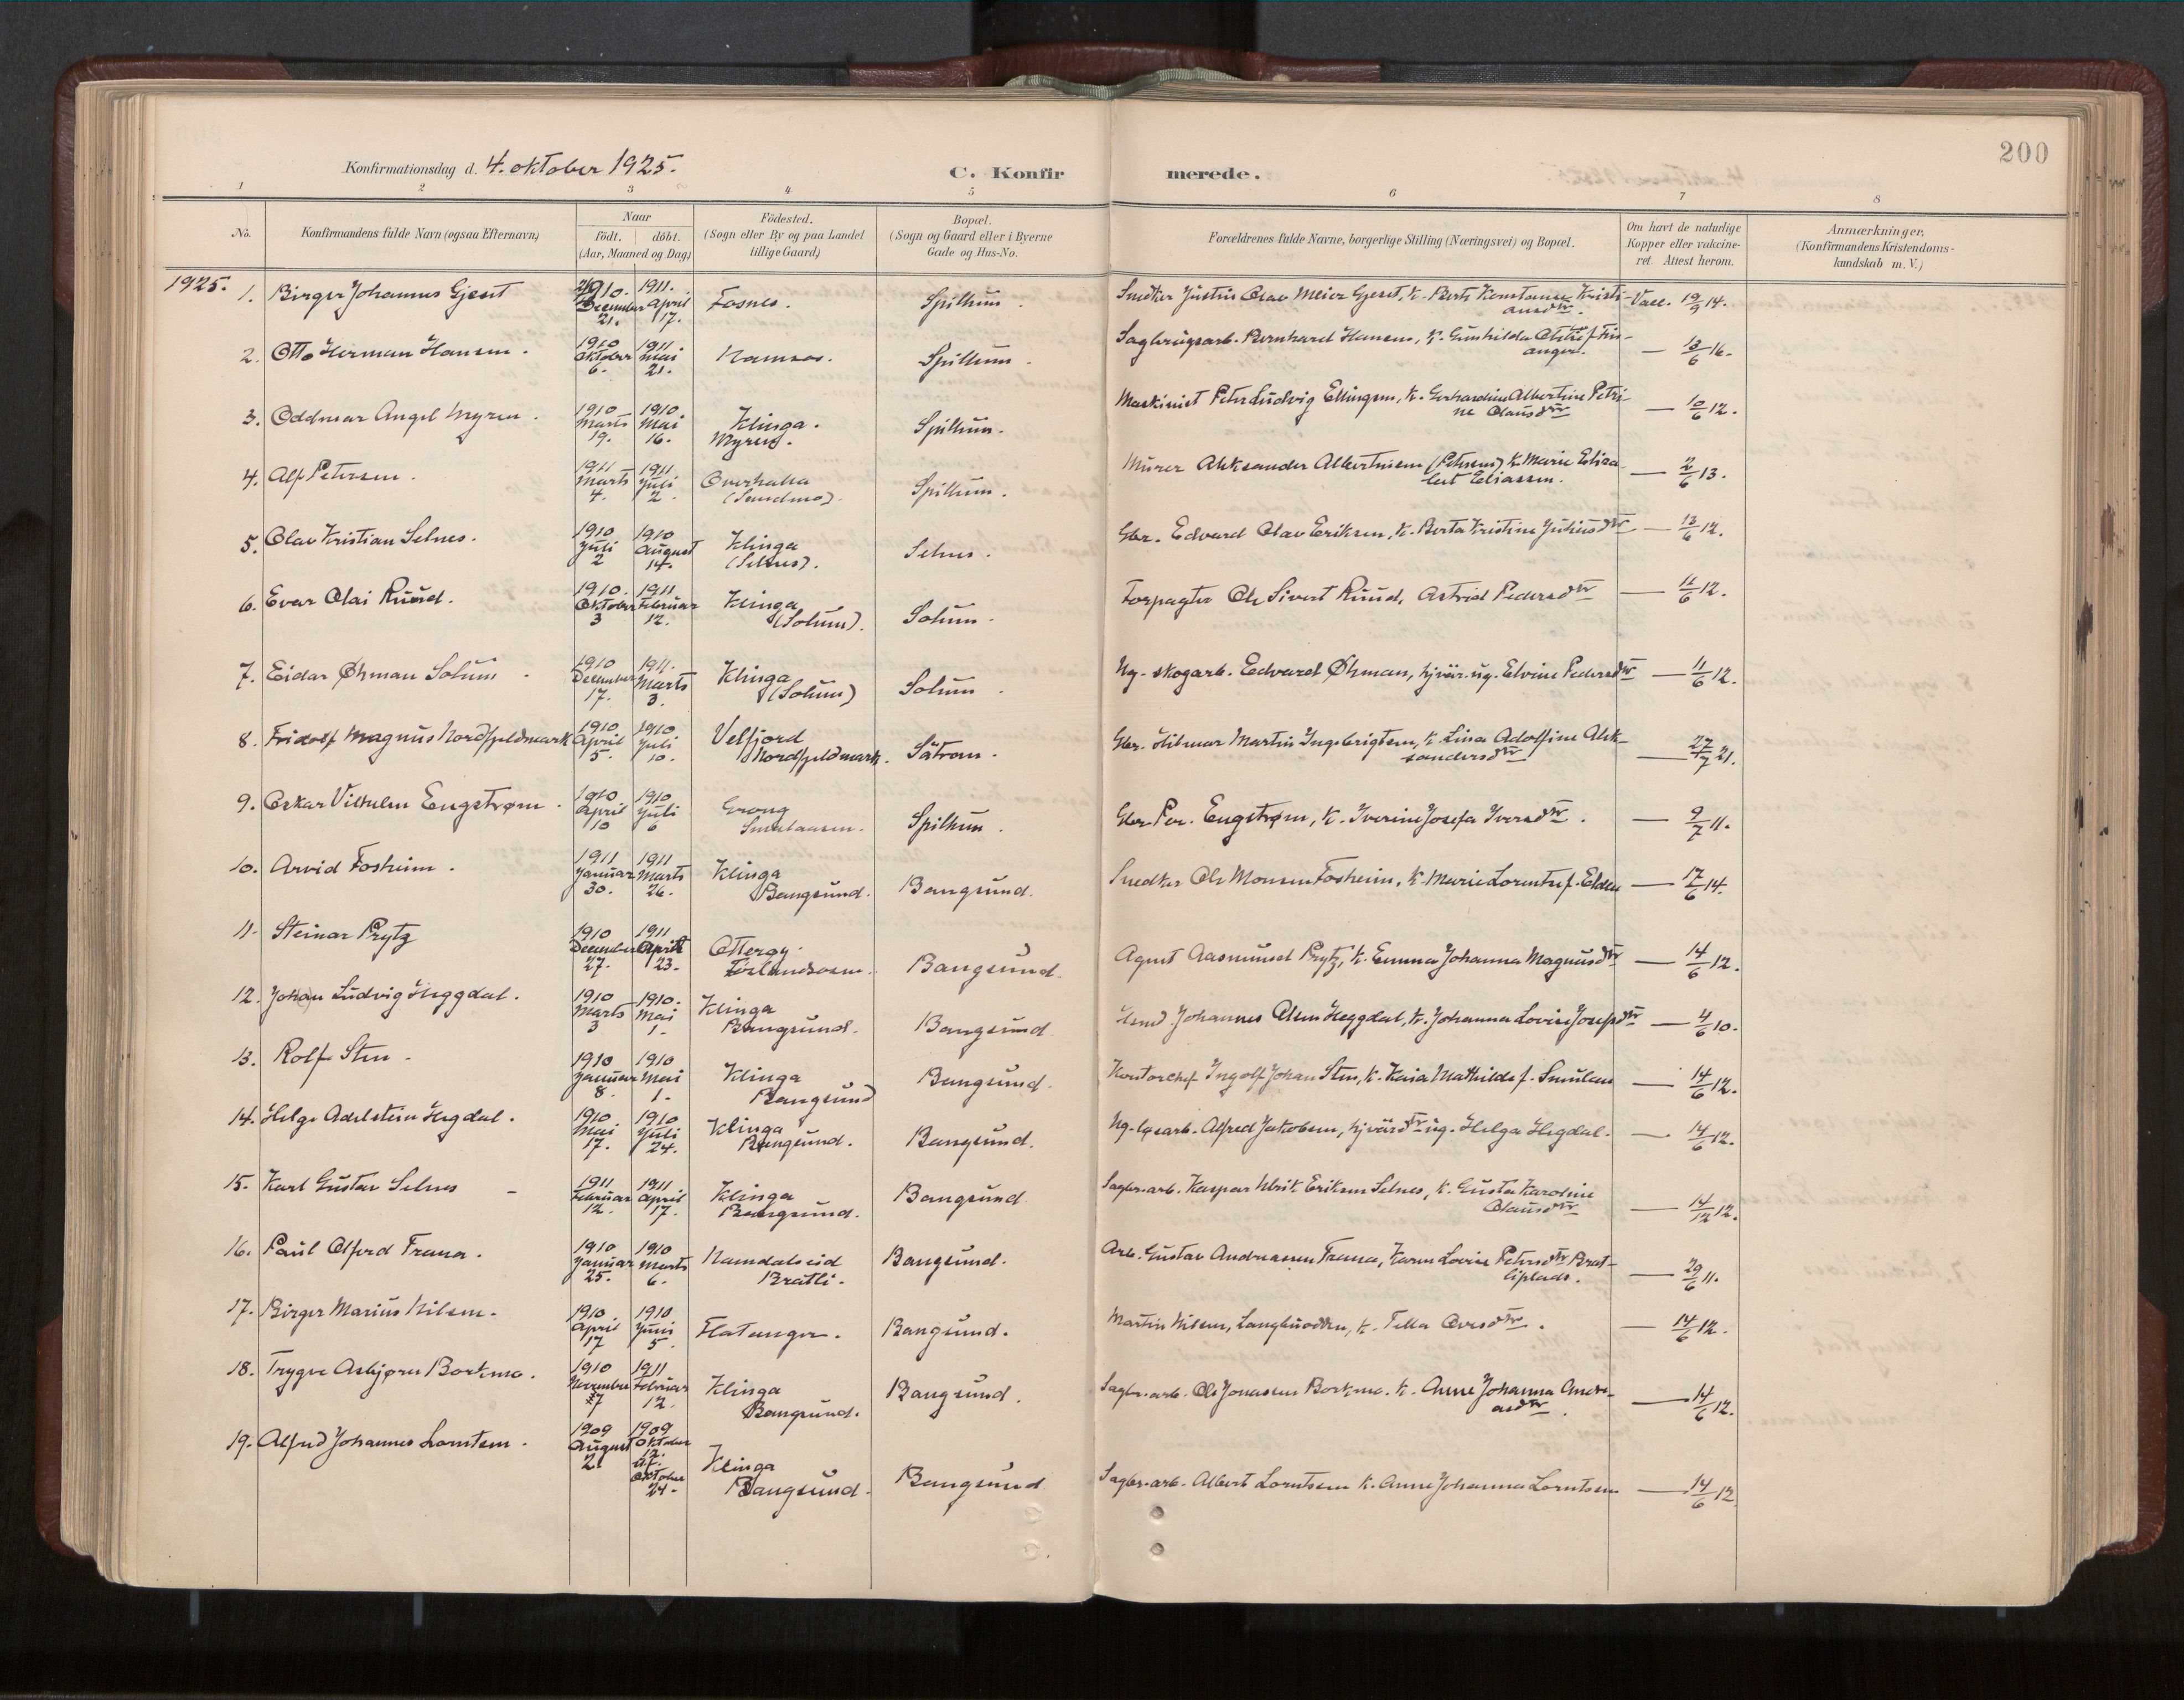 200
Konfirmationsdag d. 4. oktober 1925.
C. Konfirmerede.
1 2 3 4 5 6 7 8
No.
Konfirmandens fulde Navn (ogsaa Efternavn)
Naar
födt. döbt.
(Aar, Maaned og Dag)
Födested.
(Sogn eller By og paa Landet
tillige Gaard)
Bopæl.
(Sogn og Gaard eller i Byerne
Gade og Hus-No.
Forældrenes fulde Navne, borgerlige Stilling (Næringsvei) og Bopæl.
Om havt de naturlige
Kopper eller vakcine-
ret. Attest herom.
Anmærkninger.
(Konfirmandens Kristendoms-
kundskab m. V.)
1925. 1. Birger Johannes Gjeset 1910. December 21. 1911. April 17. Fosnes. Spillum. Snedker Justin Olav Meier Gjeset, k. Berts Konstanse Kristi-
ansdtr. Vacc. 19/9 14.
2. Otto Herman Hansen. 1910 Oktober 6. 1911 Mai 21. Namsos. Spillum. Sagbrugsarb. Bernhard Hansen, k. Gunhilda f. Fin-
anger. — 13/6 16.
3. Oddmar Angel Myren. 1910 Marts 19. 1910 Mai 16. Klinga. Myren. Spillum. Maskinist Peter Ludvig Ellingsen, k. Gerhardine Albertine Petri-
ne Olausdtr — 10/6 12.
4. Alf Petersen. 1911 Marts 4. 1911. Juli 2. Overhalla (Sandmo). Spillum. Murer Aleksander Albertsen (Petersen) k. Marie Elisa-
bet Eliassen. — 2/6 13.
5. Olav Kristian Selnes. 1910 Juli 2 1910 August 14. Klinga (Selnes). Selnes. Gbr. Edvard Olav Eriksen, k. Berta Kristine Juliusdtr — 13/6 12.
6. Evar Olai Ruud. 1910. Oktober 3 1911 Februar 12. Klinga (Solum). Solum. Forpagter Ole Sivert Ruud, Astrid Pedersdtr — 11/6 12.
7. Eidar Øhman Solum. 1910 December 17. 1911. Marts 3. Klinga (Solum) Solum. Ug. skogarb. Edvard Øhman, hjvær. ug. Elvine Pedersdtr — 11/6 12.
8. Fridolf Magnus Nordfjeldmark 1910 April 5. 1910 Juli 10. Velfjord Nordfjeldmark. Sätran. Gbr. Hilmar Martin Ingebrigtsen, k. Lina Adolfine Alek-
sandersdtr — 27/7 21.
9. Oskar Vilhelm Engstrøm. 1910 April 10 1910 Juli 6 Grong Spillum. Gbr Per. Engstrøm, k. Iverine Josefa Iversdtr. — 9/7 11.
10. Arvid Fosheim. 1911 Januar 30. 1911 Marts 26. Klinga Bangsund. Bangsund. Snedker Ole Monsen Fosheim, k. Marie Lorentse f. Elden — 17/6 14.
11. Steinar Prytz 1910 December 27. 1911 April 23. Otterøy. Bangsund. Agent Aasmund Prytz, k. Emma Johanna Magnusdtr — 14/6 12.
12. Johan Ludvig Heggdal. 1910 Marts 3 1910. Mai 1. Klinga Bangsund. Bangsund Johannes Olsen Heggdal, k. Johanna Lovise Josefsdtr — 4/6 10.
13. Rolf Sten. 1910 Januar 8. 1910 Mai 1. Klinga Bangsund Bangsund. Kontorchef Ingolf Johan Sten, k. Kaia Mathilde f. — 14/6 12.
14. Helge Adelstein Hegdal. 1910 Mai 17. 1910 Juli 24. Klinga Bangsund. Bangsund. Ug. løsarb. Alfred Jakobsen, hjværdtr ug. Helga Hegdal. — 14/6 12.
15. Karl Gustav Selnes 1911 Februar 12. 1911 April 17. Klinga Bangsund. Bangsund Sagbr.arb. Kaspar Ulrik Eriksen Selnes, k. Gusta Karoline
Olausdtr — 14/12 12.
16. Paul Alfred Frana. 1910 Januar 25. 1910 Marts 6. Namdalseid Bratli. Bangsund. Arb. Gustav Andreassen Frana, Karen Lovise Petersdtr Brat-
liplads. — 29/6 11.
17. Birger Marius Nilsen. 1910 April 17 1910 Juni 5. Flatanger. Bangsund. Martin Nilsen, k. Tella Ovesdtr. — 14/6 12.
18. Trygve Asbjørn Borkmo. 1910 November 7 1911 Februar 12. Klinga Bangsund. Bangsund. Sagbr.arb. Ole Jonassen Borkmo. k. Anne Johanna Andre-
asdtr. — 14/6 12.
19. Alfred Johannes Lorntsen. 1909 August 21 1909 Oktober 12. Oktober 24. Klinga Bangsund. Bangsund Sagbr.arb. Albert Lorntsen k. Anne Johanna Lorntsen — 14/6 12